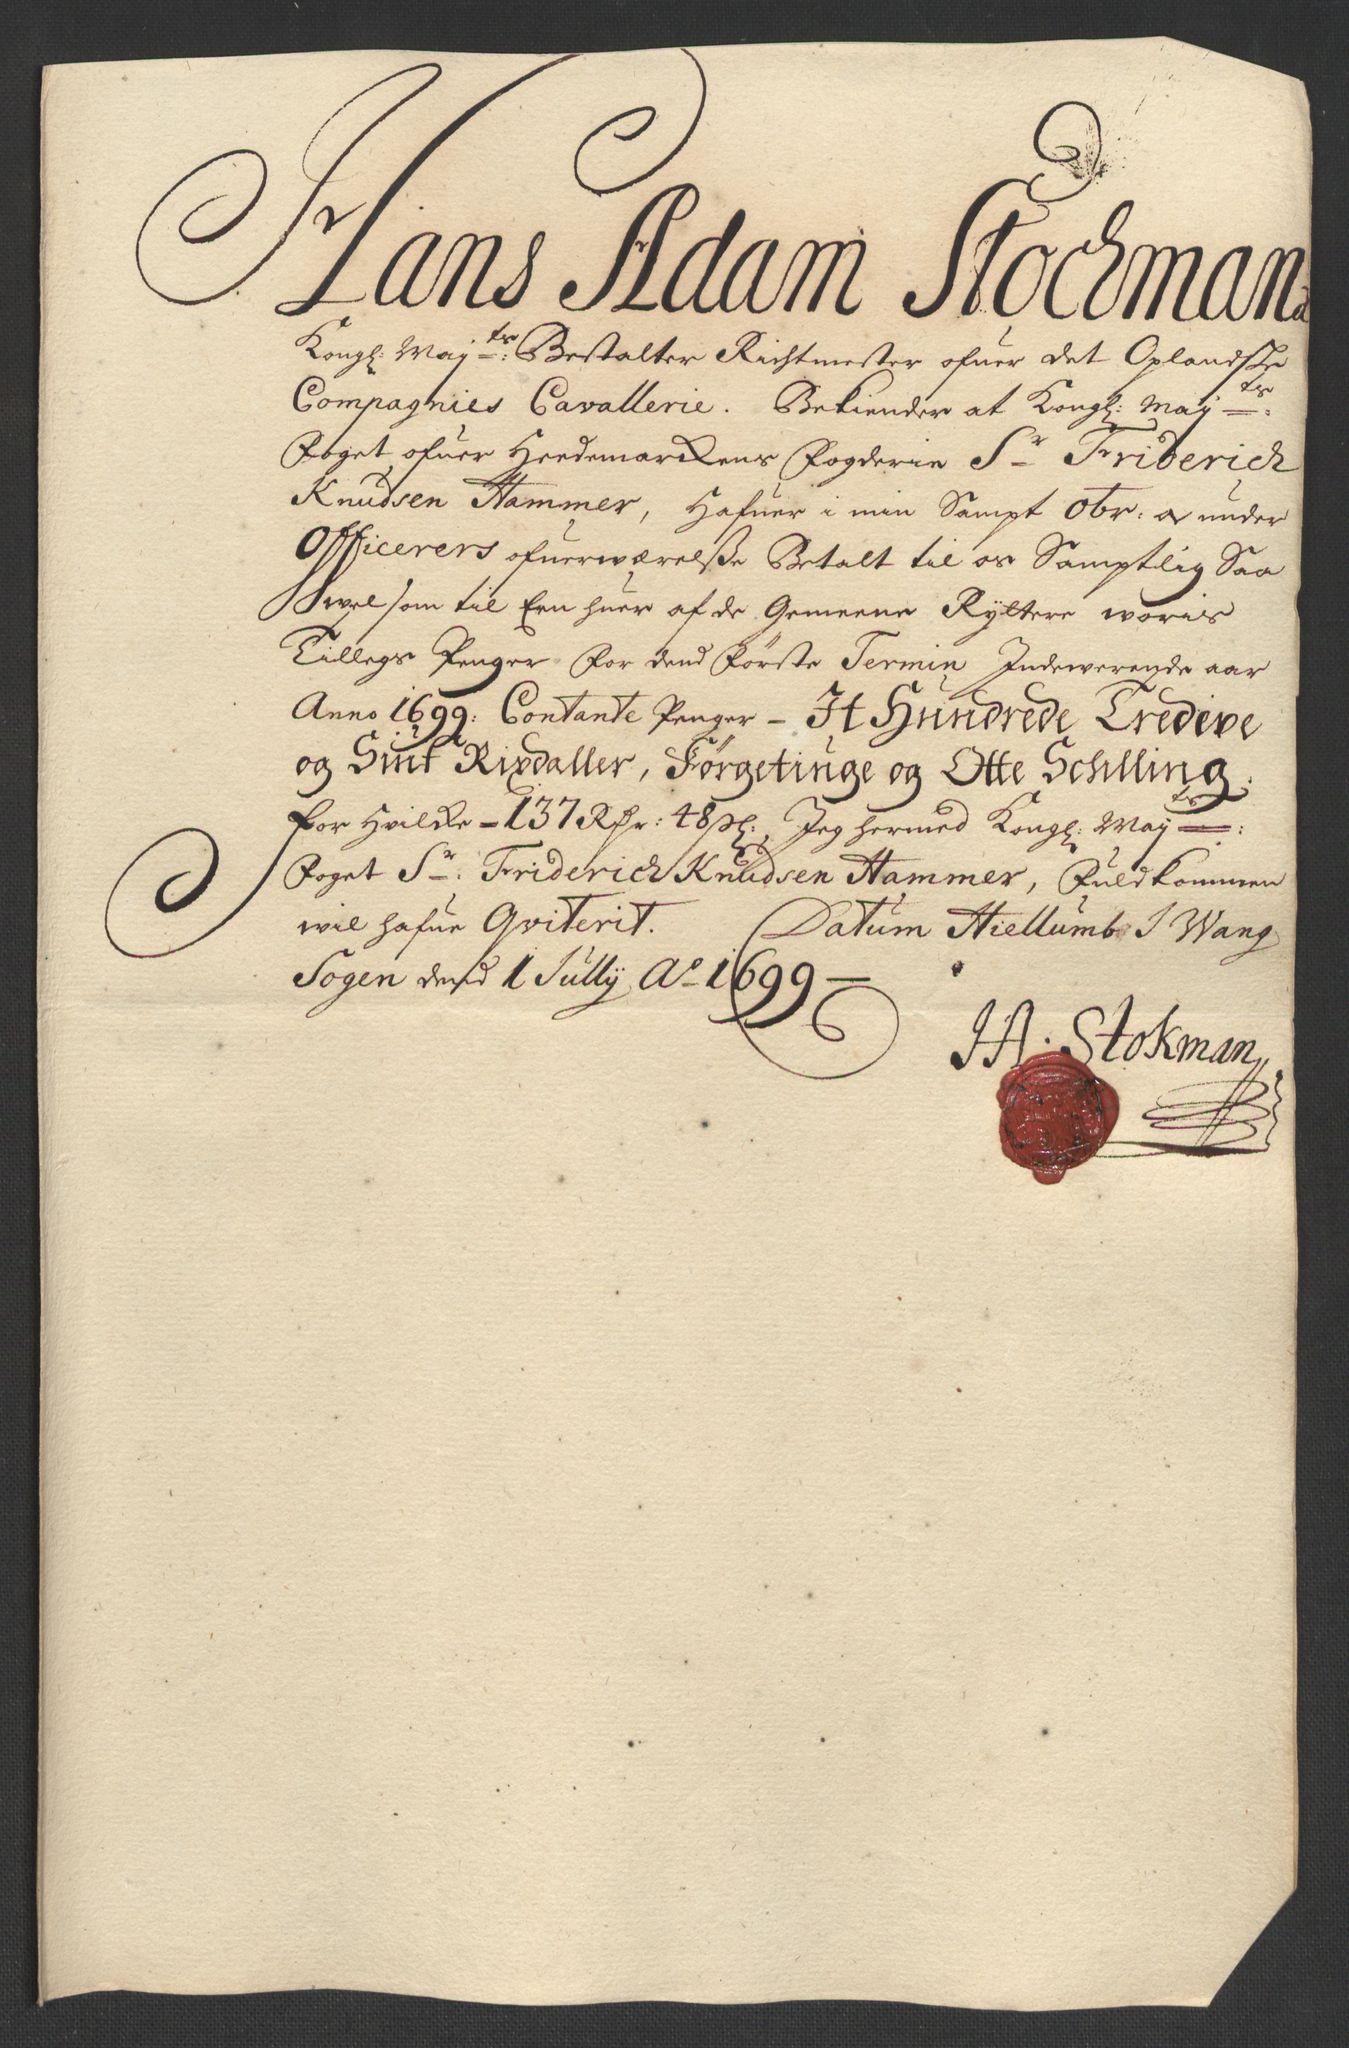 Hans Adam Stockman
Kongl: May:ts Bestalter Richtmester ofuer det Oplandske
Compagnies Cavallerie. Bekiender at Kongl: May:ts
Foget ofuer Heedemarkens Fogderie Sr Friderich
Knudsen Hammer, Hafuer i min Sampt Obr: og under
Officerers ofuerwærelsse Betalt til os Samptlig Saa
wel som til Een huer af de Gemeene Ryttere woris
Tillegs Penger for dend første Termin Indewerende aar
Anno 1699: Contante Penger – It Hundrede Tredive
og Siuf Rixdaller, Førgetiuge og Otte Schilling.
for Hvilke – 137 Rdr: 48 sl:, Jeg hermed Kongl: May:ts
Foget Sr: Friderich Knudsen Hammer, Fuldkommen
wil hafue Qviterit. Datum Hiellumb I Wang
Sogen dend 1 Jully Ao 1699 –
HA. Stokman